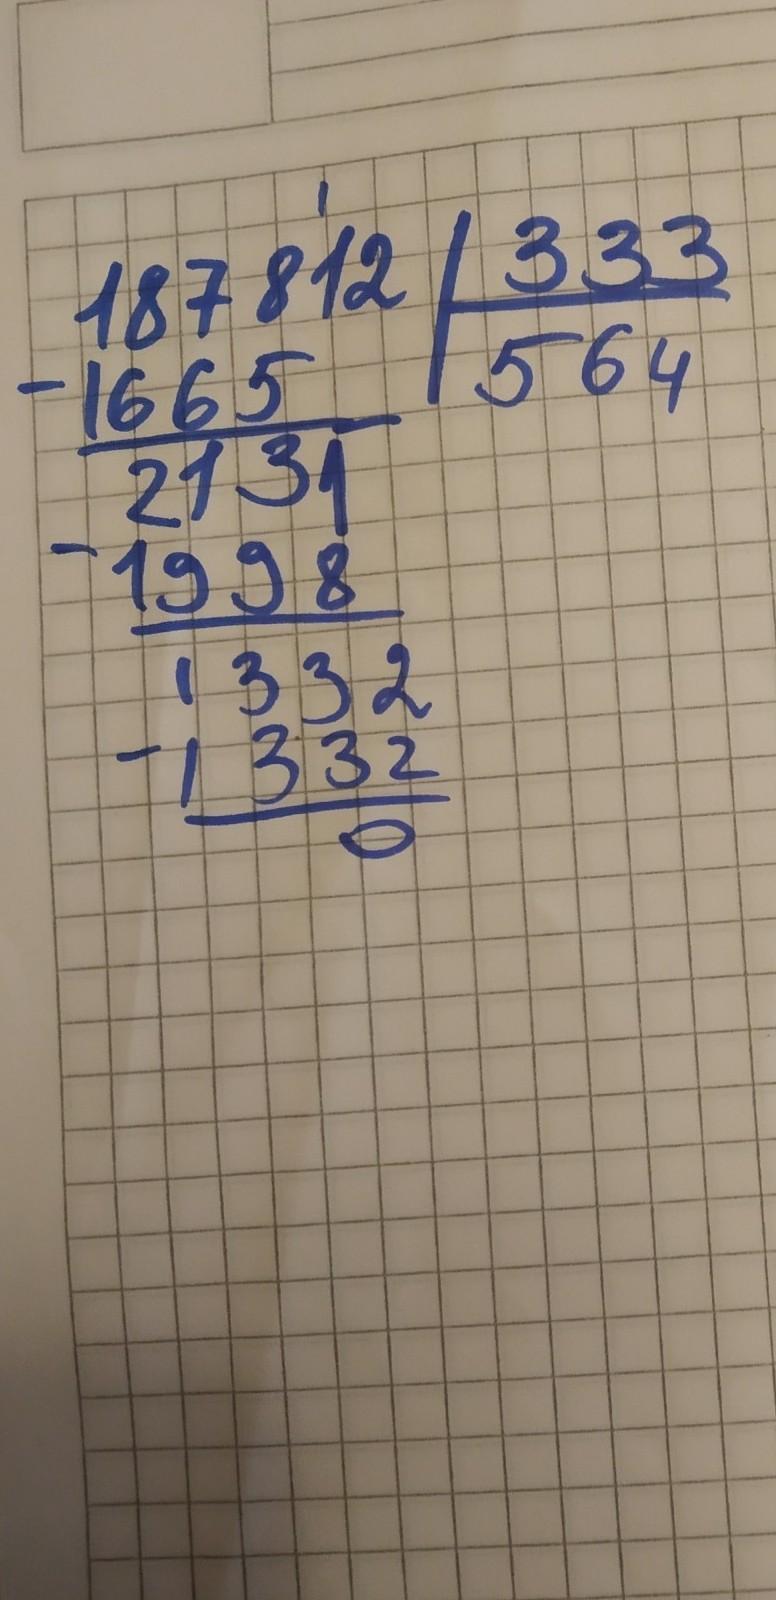 1
187812 333
-1665 564
2131
-1998
1332
-1332
0